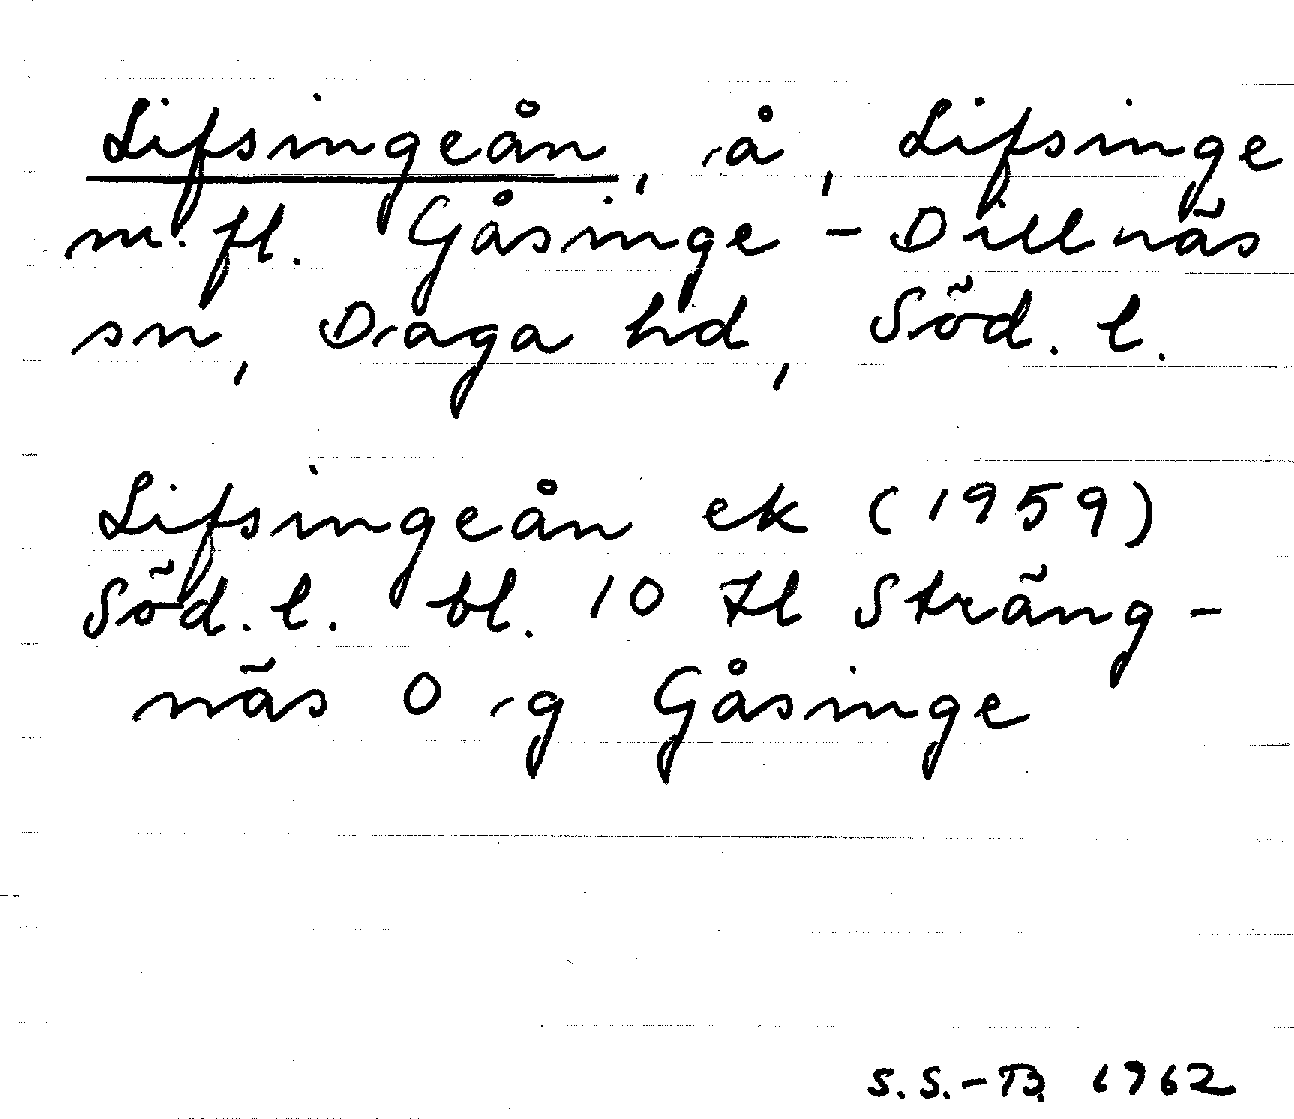 Lifsingeån, å, Lifsinge
m. fl. Gåsinge - Dillnäs
sn, Daga hd, Söd. l.
Lifsingeån ek (1959)
Söd. l. bl. 10 Il Sträng-
näs O g Gåsinge
S.S.-B. 1962